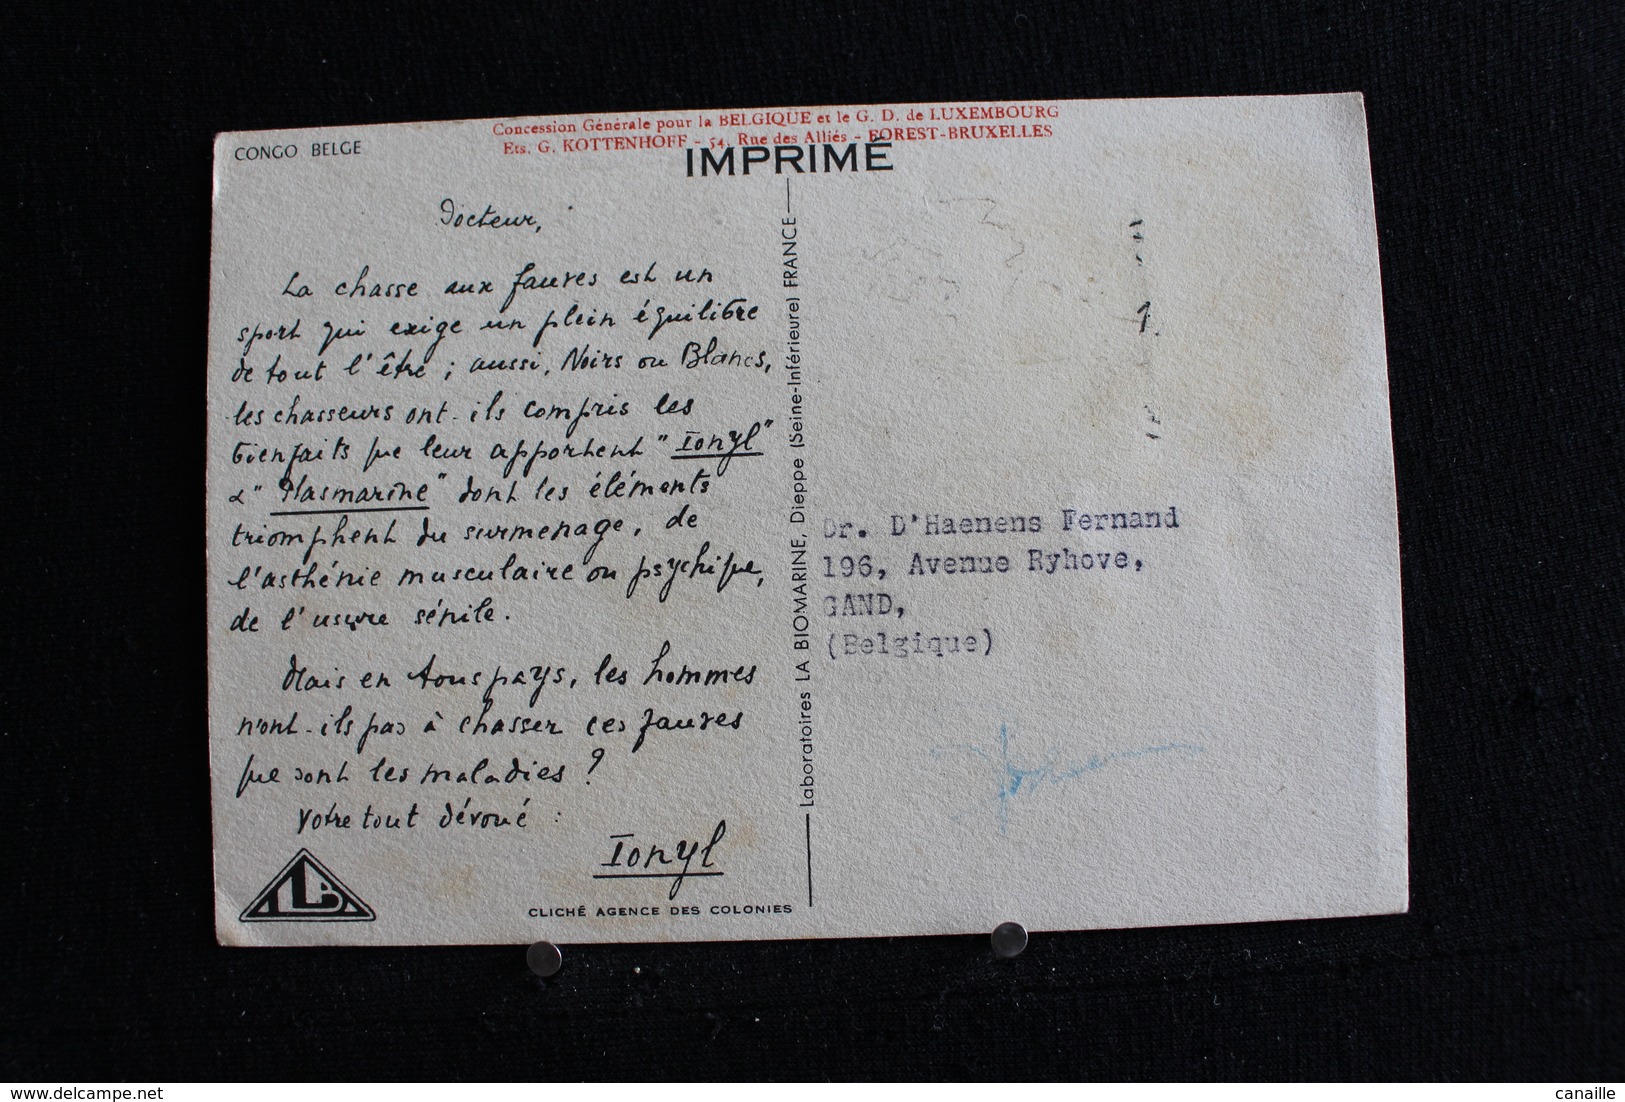 Concession Générale pour la BELGIQUE et le G. D. de LUXEMBOURG
Ets. G. KOTTENHOFF - 54, Rue des Alliés - FOREST-BRUXELLES
CONGO BELGE
IMPRIMÉ
Docteur,
La chasse aux fauves est un
sport qui exige un plein équilibre
de tout l'être ; aussi, Noirs ou Blancs,
les chasseurs ont-ils compris les
bienfaits que leur apportent "Ionyl"
& "Plasmarine" dont les éléments
triomphent du surmenage, de
l'asthénie musculaire ou psychique,
de l'usure sénile.
Mais en tous pays, les hommes
n'ont-ils pas à chasser ces fauves
que sont les maladies ?
Votre tout dévoué :
Ionyl
LB
CLICHÉ AGENCE DES COLONIES
Laboratoires LA BIOMARINE, Dieppe (Seine-Inférieure) FRANCE
1.
Dr. D'Haenens Fernand
196, Avenue Ryhove,
GAND,
(Belgique)
delcampe.net
canaille